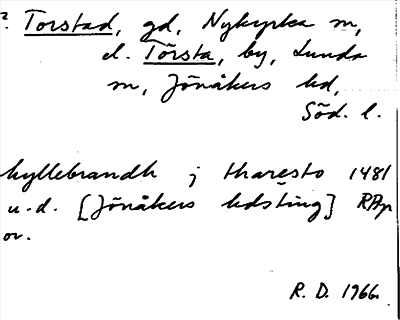 ? Torstad, gd, Nykyrka sn,
el. Törsta, by, Lunda
sn, Jönåkers hd,
Söd. l.
hyllebrandh j tharesto 1481
u.d. [Jönåkers hdsting] RAp
or.
R. D. 1966.